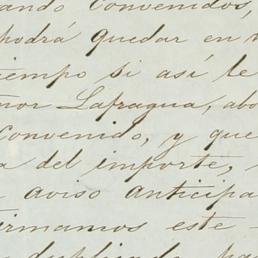 ando convenidos,
podrá quedar en
tiempo si así le
ñor Lafragua, abo
convenido, y que
a del importe,
aviso anticipa
firmamos este
duplicado